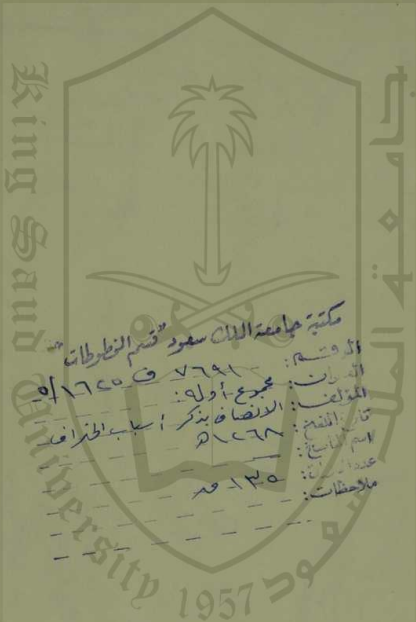 جامعة الملك سعود
King Saud University
1957
مكتبة جامعة الملك سعود "قسم المخطوطات"
الرقم: ٧٦٩١ ف ١٦٢٥/٥
العنوان: مجموع أوله:
المؤلف: الانصاف بذكر أسباب الخلاف
تاريخ النسخ: ١٢٦٨هـ
اسم الناسخ:
عدد الأوراق: ١٣٥ ق
ملاحظات: